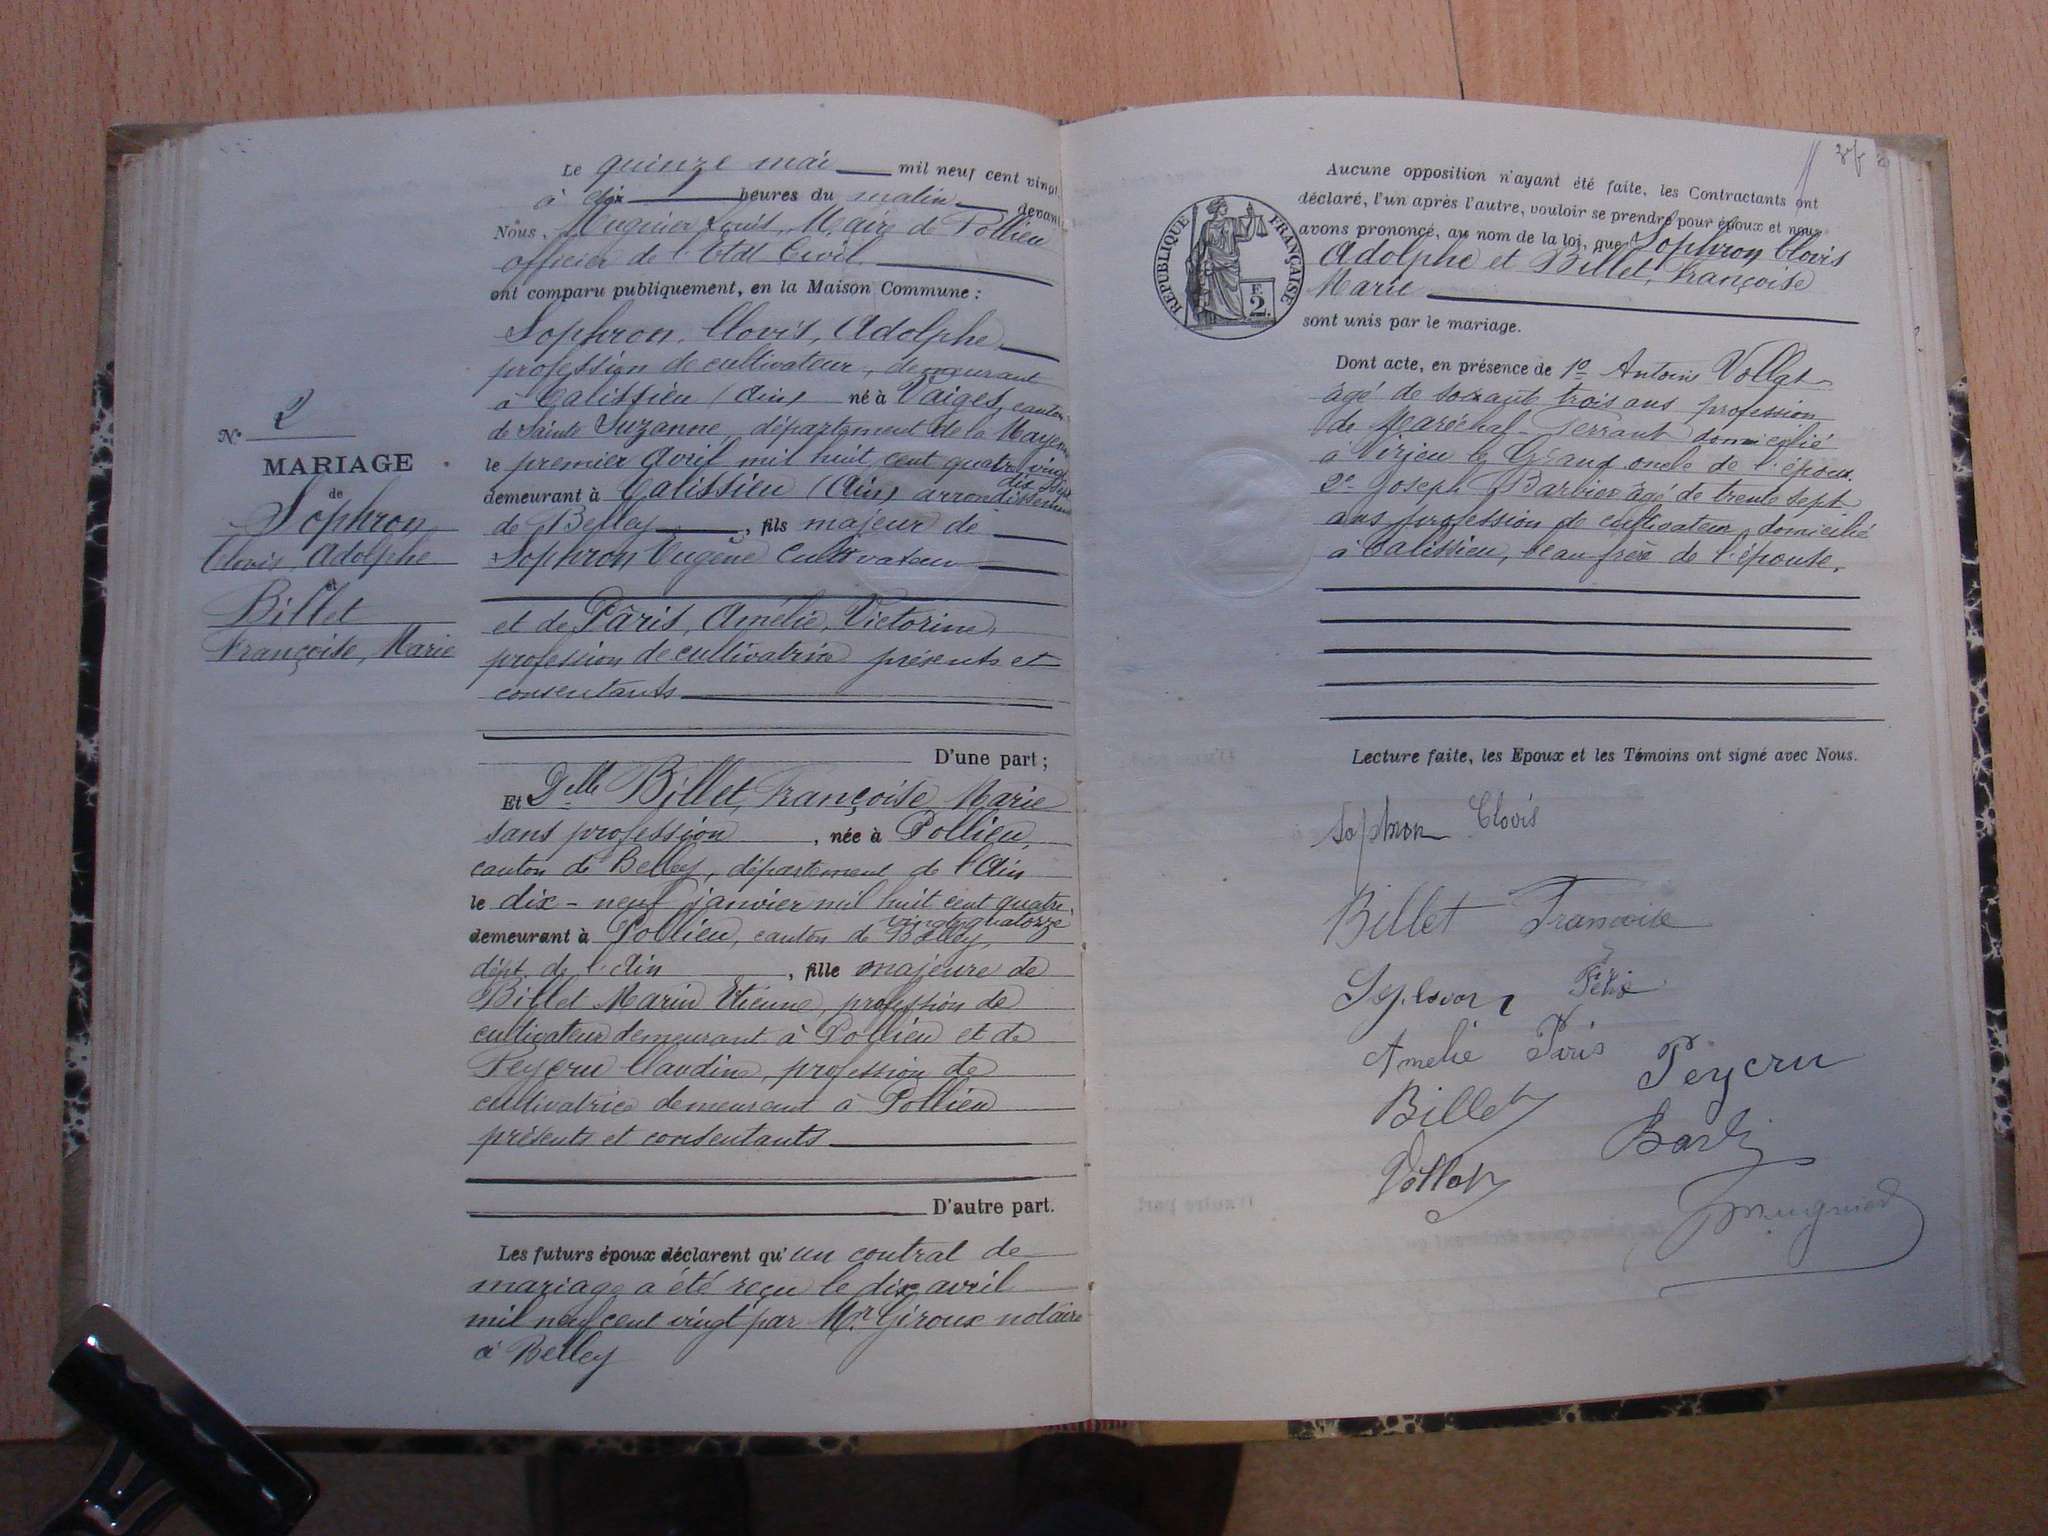 Nº 2
MARIAGE
de
Sophron
Clovis, Adolphe
et
Billet
Françoise, Marie
Le quinze mai mil neuf cent vingt
à dix heures du matin devant
Nous, Mugnier Louis, Maire de Pollieu
officier de l'Etat Civil
ont comparu publiquement, en la Maison Commune :
Sophron, Clovis, Adolphe
profession de cultivateur, demeurant
à Talissieu (Ain) né à Vaiges, canton
de Sainte Suzanne, département de la Mayenne
le premier avril mil huit cent quatre vingt
dix sept
demeurant à Talissieu (Ain) arrondissement
de Belley, fils majeur de
Sophron Eugène Cultivateur
et de Pâris, Amélie, Victorine,
profession de cultivatrice présents et
consentants
D'une part ;
Et Delle Billet, Françoise, Marie
sans profession, née à Pollieu,
canton de Belley, département de l'Ain
le dix-neuf janvier mil huit cent quatre
vingt quatorze
demeurant à Pollieu, canton de Belley,
dépt de l'Ain, fille majeure de
Billet Marin Etienne, profession de
cultivateur demeurant à Pollieu et de
Peycru Claudine, profession de
cultivatrice demeurant à Pollieu
présents et consentants
D'autre part.
Les futurs époux déclarent qu'un contrat de
mariage a été reçu le dix avril
mil neuf cent vingt par Mr Giroux notaire
à Belley
RÉPUBLIQUE FRANÇAISE
F.
2.
Aucune opposition n'ayant été faite, les Contractants ont
déclaré, l'un après l'autre, vouloir se prendre pour époux et nous
avons prononcé, au nom de la loi, que Sophron Clovis
Adolphe et Billet, Françoise
Marie
sont unis par le mariage.
Dont acte, en présence de 1º Antoine Vollat
âgé de soixante trois ans profession
de Maréchal-Ferrant domicilié
à Virieu le Grand oncle de l'époux.
2º Joseph Barbier âgé de trente sept
ans profession de cultivateur domicilié
à Talissieu, beau frère de l'épouse.
Lecture faite, les Epoux et les Témoins ont signé avec Nous.
Sophron Clovis
Billet Francoise
Amelie Pâris
Billet Peycru
Vollat
Mugnier